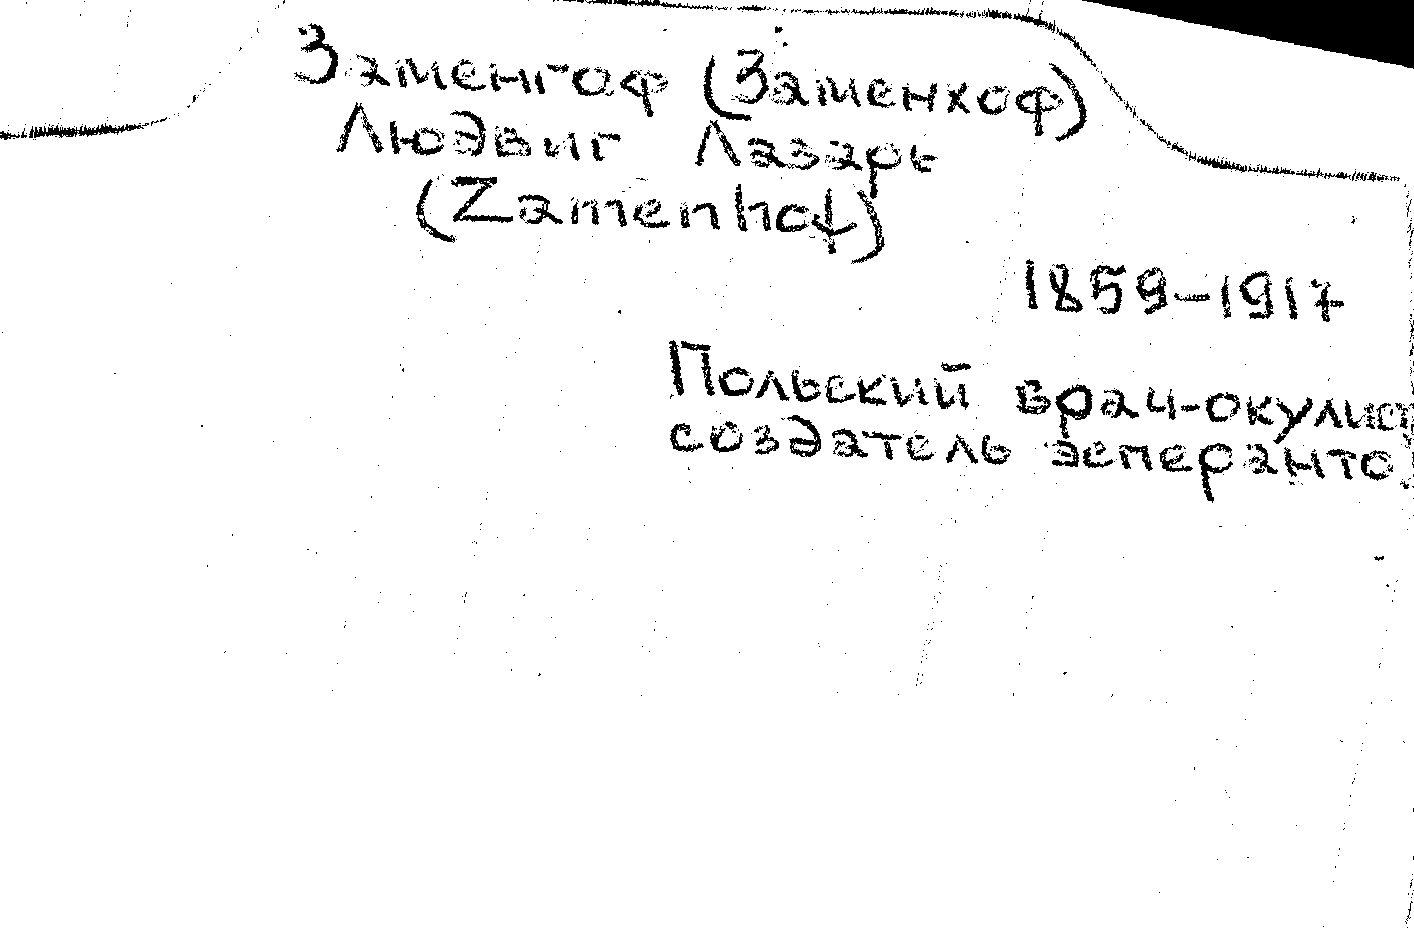 Заменгоф (Заменхоф)
Людвиг Лазарь
(Zamenhof)
1859-1917
Польский врач-окулист
создатель эсперанто.